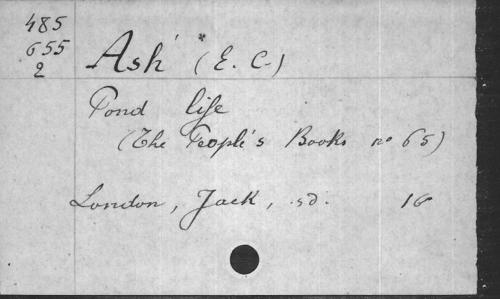 485
655
2
Ash * (E. C.)
Pond life
(The People's Books no 65)
London, Jack, sd. 16